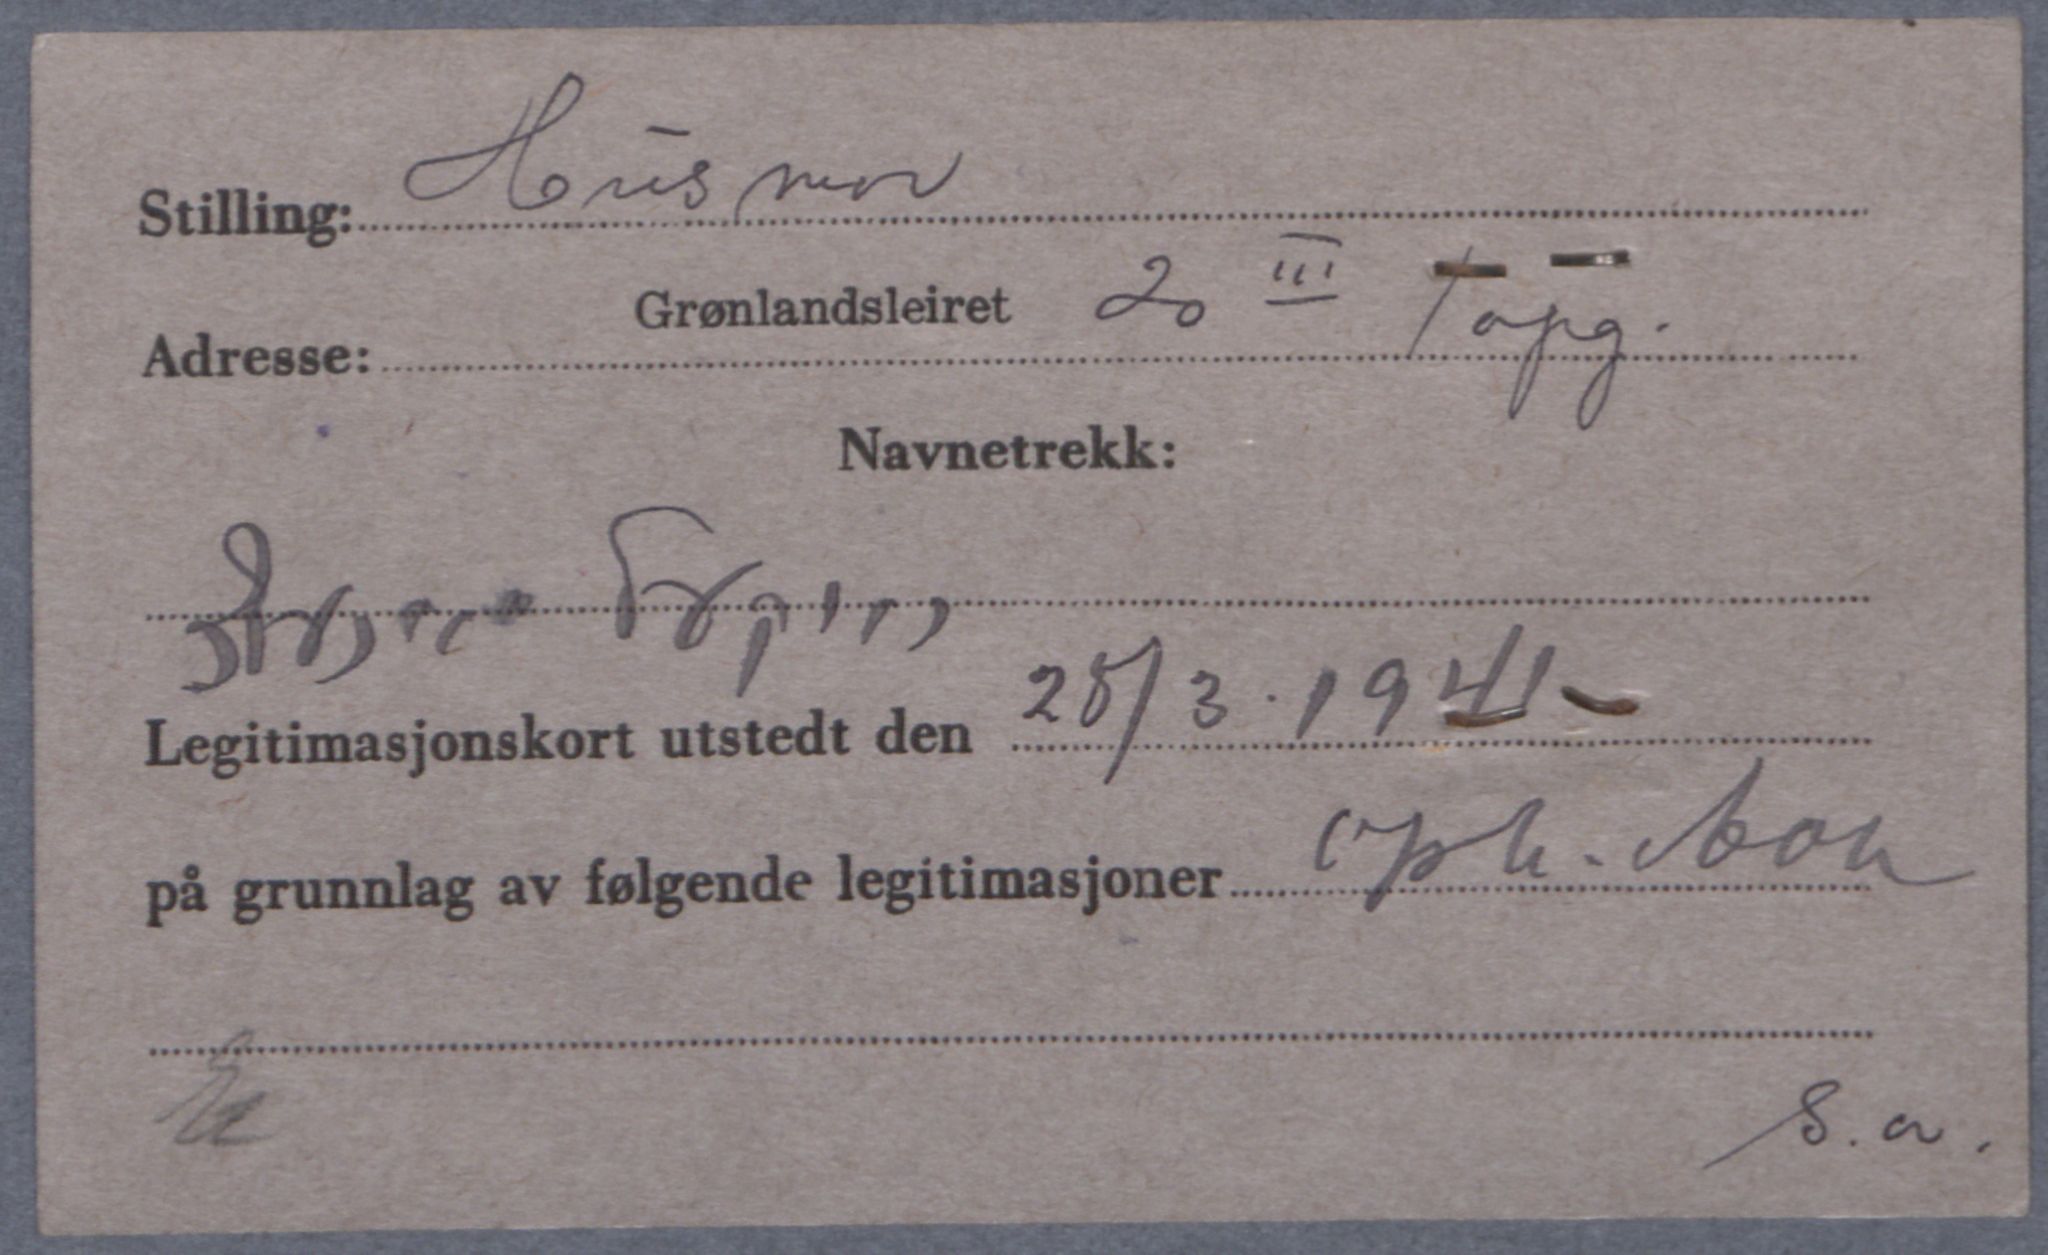 Stilling: Husmor
Adresse: Grønlandsleiret 20 III Topg.
Navnetrekk:
Legitimasjonskort utstedt den 28/3. 1941
på grunnlag av følgende legitimasjoner oph. bok
S. a.